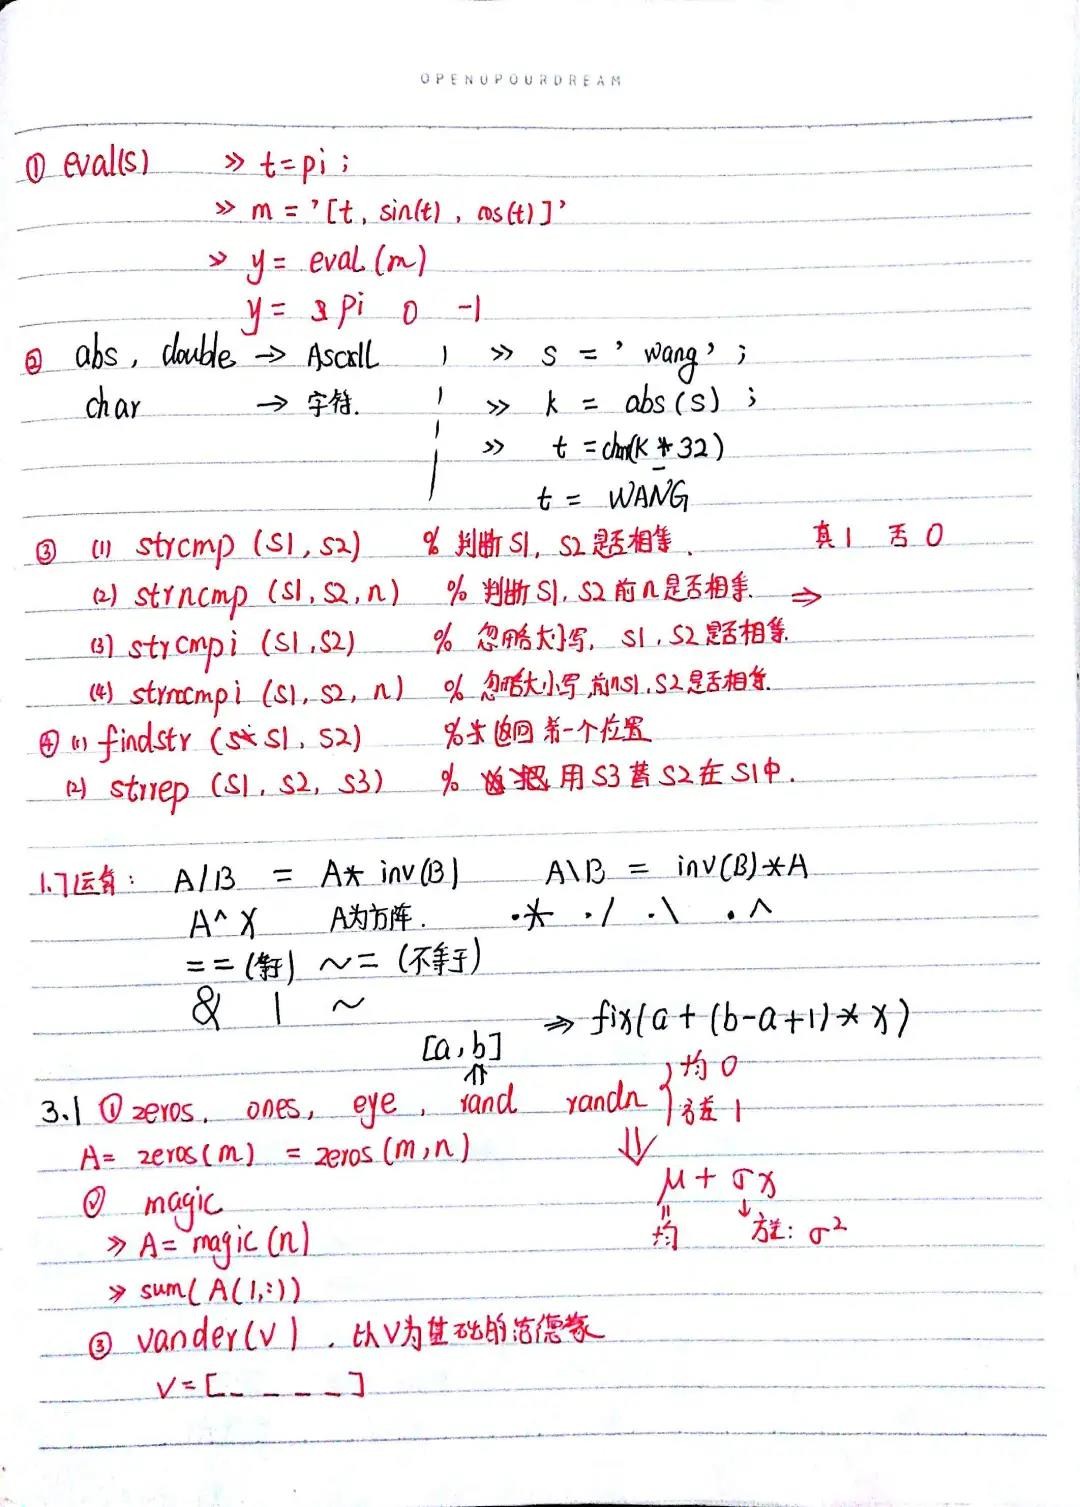 OPENUPOURDREAM
① eval(s) >> t=pi;
>> m = '[t, sin(t), cos(t)]'
>> y= eval(m)
y= pi 0 -1
② abs, double → Ascall
char → 字符.
>> s = 'wang';
>> k = abs(s);
>> t =char(k-32)
t = WANG
③ (1) strcmp (S1, S2) % 判断S1, S2是否相等. 真1 否0
(2) strncmp (S1, S2, n) % 判断S1, S2前n是否相等. ⇒
(3) strcmpi (S1, S2) % 忽略大小写, S1, S2是否相等.
(4) strncmpi (S1, S2, n) % 忽略大小写,前nS1, S2是否相等.
④ (1) findstr (S1, S2) % 返回第一个位置
(2) strrep (S1, S2, S3) % 用S3替S2在S1中.
1.7运算: A/B = A* inv(B) A\B = inv(B)*A
A^X A为方阵. .* ./ .\ .^
==(等于) ~=(不等于)
& | ~
[a,b] ⇒ fix(a+(b-a+1)*x)
3.1 ① zeros, ones, eye, rand randn { 均0
方差1
A= zeros(m) = zeros(m,n)
μ+σx
均 方差: σ²
② magic
>> A= magic(n)
>> sum(A(1,:))
③ vander(V). 以V为基础的范德蒙
V=[_ _ _ _]